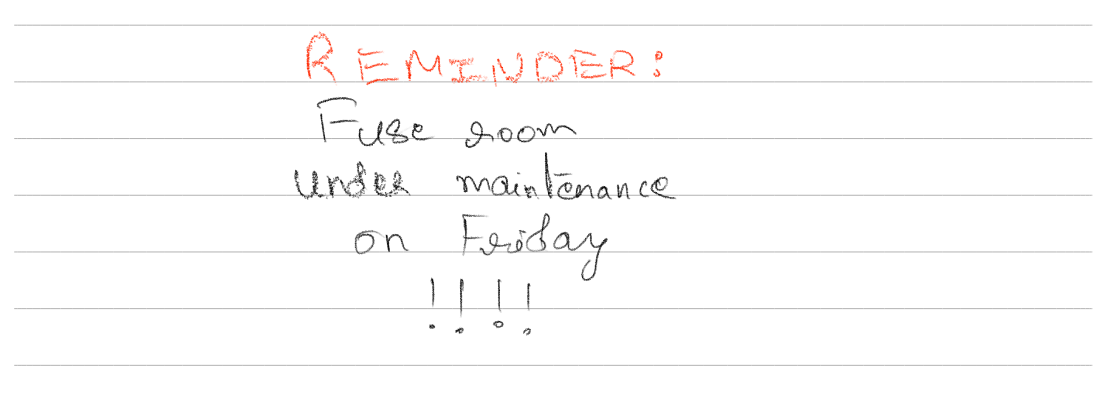 REMINDER:
Fuse room
under maintenance
on Friday
!!!!